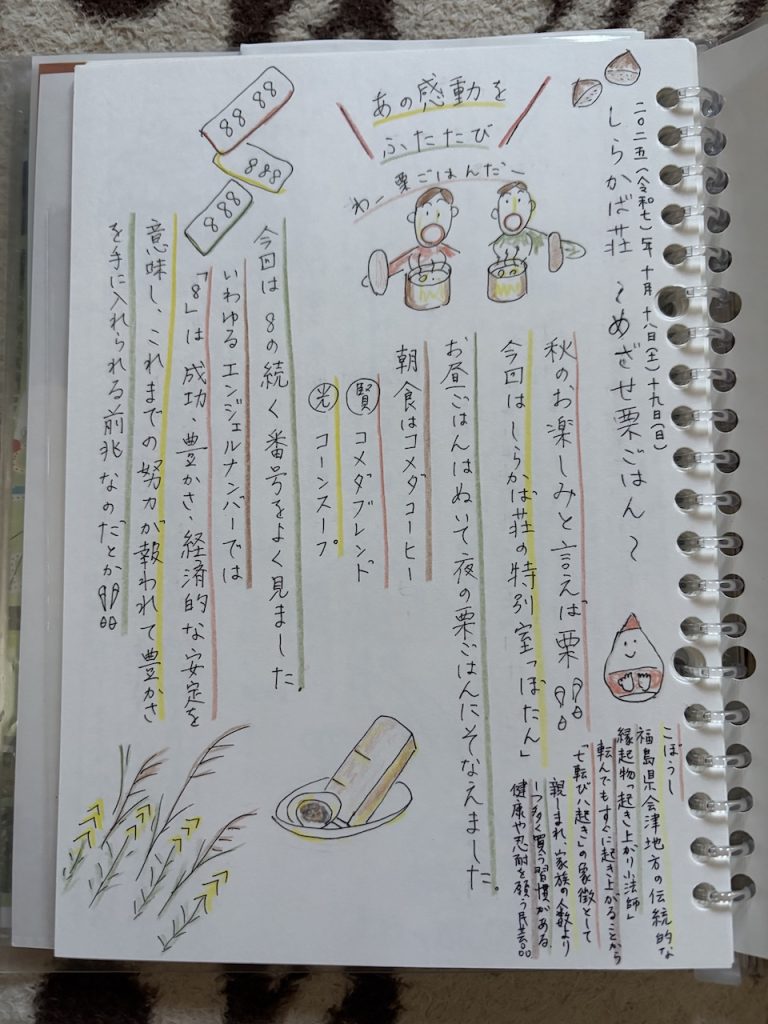 二〇二五(令和七)年 十月 十八日(土) 十九日(日)
しらかば荘 〜めざせ栗ごはん〜
あの感動を
ふたたび
わー栗ごはんだー
秋のお楽しみと言えば栗!!
今回はしらかば荘の特別室「ぼたん」
お昼ごはんはぬいて夜の栗ごはんにそなえました。
朝食はコメダコーヒー
賢 コメダブレンド
光 コーンスープ
88 88
888
888
今回は8の続く番号をよく見ました。
いわゆるエンジェルナンバーでは
「8」は成功、豊かさ、経済的な安定を
意味し、これまでの努力が報われて豊かさ
を手に入れられる前兆なのだとか!!
こぼうし
福島県会津地方の伝統的な
縁起物「起き上がり小法師」
転んでもすぐに起き上がることから
「七転び八起き」の象徴として
親しまれ、家族の人数より
一つ多く買う習慣がある
健康や忍耐を願う民芸品